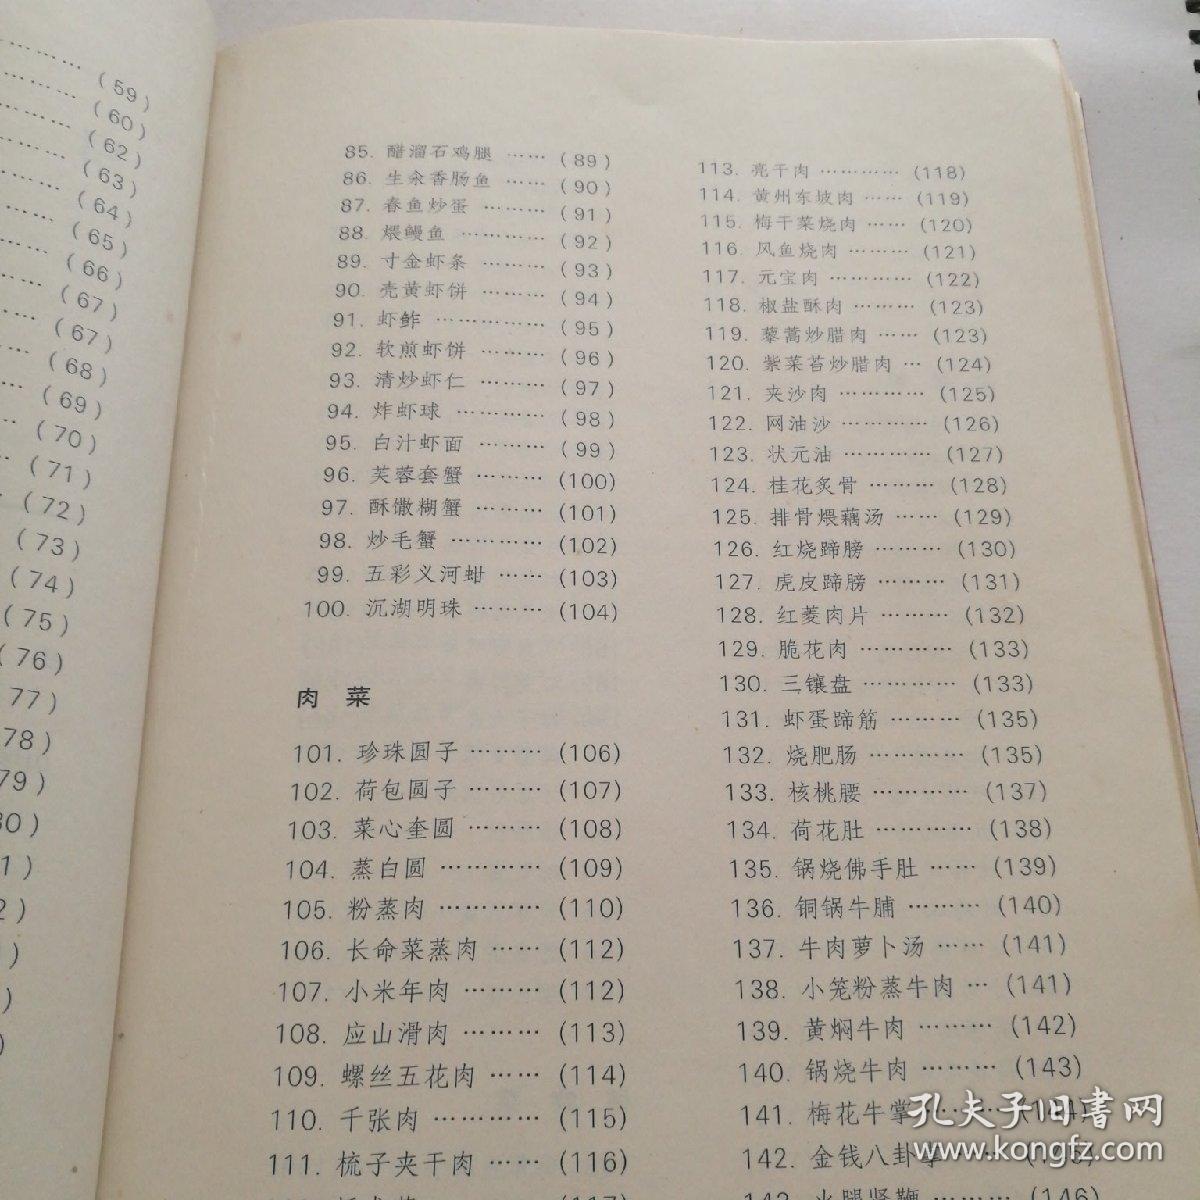 (59)
(60)
(62)
(63)
(64)
(65)
(66)
(67)
(67)
(68)
(69)
(70)
(71)
(72)
(73)
(74)
(75)
(76)
77)
78)
79)
85. 醋溜石鸡腿 …… (89)
86. 生汆香肠鱼 …… (90)
87. 春鱼炒蛋 ……… (91)
88. 煨鳗鱼 ………… (92)
89. 寸金虾条 ……… (93)
90. 壳黄虾饼 ……… (94)
91. 虾鲊 …………… (95)
92. 软煎虾饼 ……… (96)
93. 清炒虾仁 ……… (97)
94. 炸虾球 ………… (98)
95. 白汁虾面 ……… (99)
96. 芙蓉套蟹 ……… (100)
97. 酥馓糊蟹 ……… (101)
98. 炒毛蟹 ………… (102)
99. 五彩义河蚶 …… (103)
100. 沉湖明珠 ……… (104)
肉 菜
101. 珍珠圆子 ……… (106)
102. 荷包圆子 ……… (107)
103. 菜心奎圆 ……… (108)
104. 蒸白圆 ………… (109)
105. 粉蒸肉 ………… (110)
106. 长命菜蒸肉 …… (112)
107. 小米年肉 ……… (112)
108. 应山滑肉 ……… (113)
109. 螺丝五花肉 …… (114)
110. 千张肉 ………… (115)
111. 梳子夹干肉 …… (116)
(117)
113. 亮干肉 ………… (118)
114. 黄州东坡肉 …… (119)
115. 梅干菜烧肉 …… (120)
116. 风鱼烧肉 ……… (121)
117. 元宝肉 ………… (122)
118. 椒盐酥肉 ……… (123)
119. 藜蒿炒腊肉 …… (123)
120. 紫菜苔炒腊肉 … (124)
121. 夹沙肉 ………… (125)
122. 网油沙 ………… (126)
123. 状元油 ………… (127)
124. 桂花炙骨 ……… (128)
125. 排骨煨藕汤 …… (129)
126. 红烧蹄膀 ……… (130)
127. 虎皮蹄膀 ……… (131)
128. 红菱肉片 ……… (132)
129. 脆花肉 ………… (133)
130. 三镶盘 ………… (133)
131. 虾蛋蹄筋 ……… (135)
132. 烧肥肠 ………… (135)
133. 核桃腰 ………… (137)
134. 荷花肚 ………… (138)
135. 锅烧佛手肚 …… (139)
136. 铜锅牛脯 ……… (140)
137. 牛肉萝卜汤 …… (141)
138. 小笼粉蒸牛肉 … (141)
139. 黄焖牛肉 ……… (142)
140. 锅烧牛肉 ……… (143)
141. 梅花牛掌 ……… (144)
142. 金钱八卦掌 (145)
143. 火腿竖鞭 (146)
孔夫子旧书网
www.kongfz.com